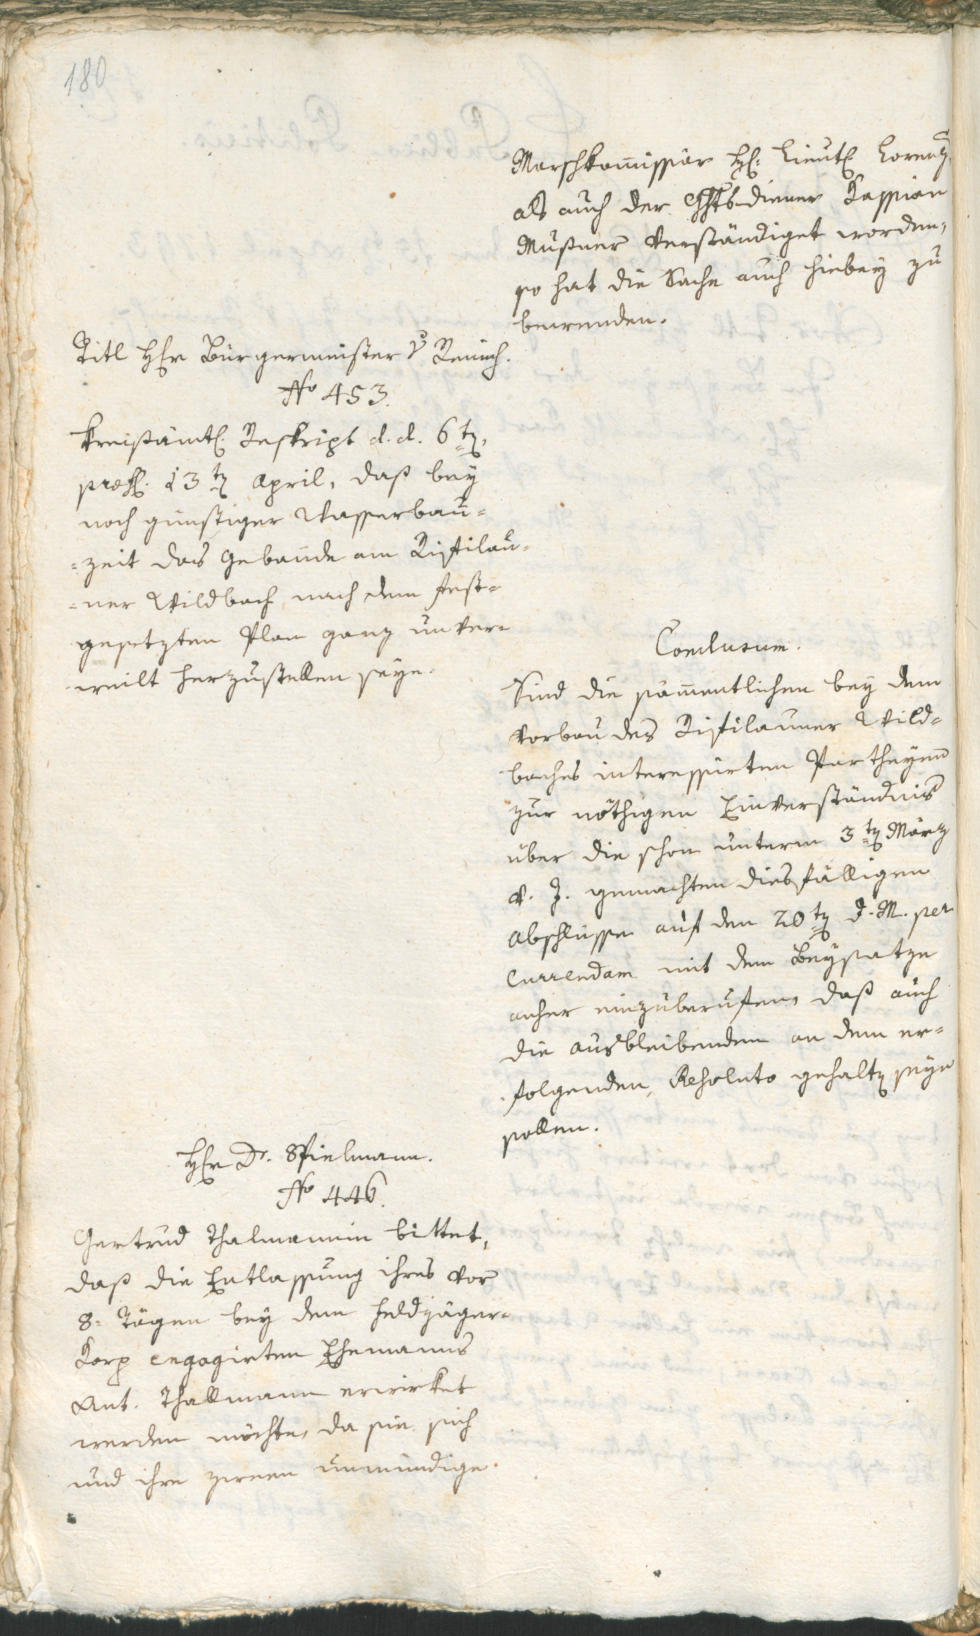 180
Marschkommissär H: Lieut: Lorenz,
als auch der Ghtsdiener Kassian
Mußner verständiget worden,
so hat die Sache auch hiebey zu
bewenden.
Titl Hfr Bürgermeister v Remich.
No 453.
Kreisämtl: Reskript d. d. 6tn,
præs: 13tn April, daß bey
noch günstiger Wasserbau=
=zeit das Gebäude am Ristilau=
=ner Wildbach nach dem fest=
gesetzten Plan ganz unver=
weilt herzustellen seye.
Conclusum.
Sind die sämmentlichen bey dem
Vorbau des Ristilauner Wild=
baches interessirten Partheyen
zur nöthigen Einverständnis
über die schon unterm 3tn März
v. J. gemachten diesfälligen
Abschlüsse auf den 20tn d. M. per
Currendam mit dem Beysatze
anher einzuberufen, daß auch
die ausbleibenden an dem er=
folgenden Resoluto gehaltn seyn
sollen.
Hfr Dr. Spielmann.
No 446.
Gertrud Thalmannin bittet,
daß die Entlassung ihres vor
8= Tägen bey dem Feldjäger=
Korp engagirten Ehemanns
Ant. Thallmann erwirket
werden möchte, da sie sich
und ihre zween unmündige